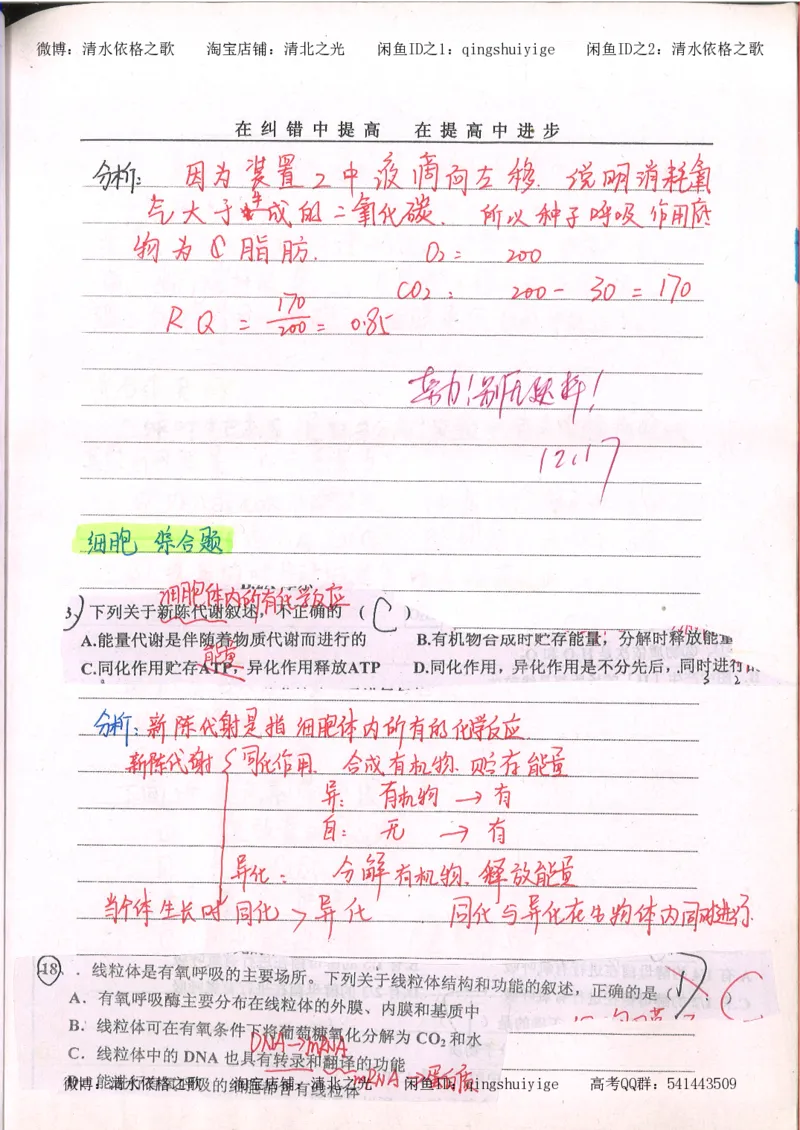 微博：清水依格之歌 淘宝店铺：清北之光 闲鱼ID之1：qingshuiyige 闲鱼ID之2：清水依格之歌
在纠错中提高 在提高中进步
分析： 因为装置2中液滴向左移. 说明消耗氧
气大于生成的二氧化碳. 所以种子呼吸作用底
物为C脂肪. O2 = 200
CO2: 200 - 30 = 170
RQ = 170/200 = 0.85
努力！
12.17
细胞 综合题
细胞体内所有化学反应
3、下列关于新陈代谢叙述，不正确的 （ C ）
A.能量代谢是伴随着物质代谢而进行的 B.有机物合成时贮存能量，分解时释放能量
能量
C.同化作用贮存ATP，异化作用释放ATP D.同化作用，异化作用是不分先后，同时进行
分析：新陈代射是指细胞体内所有的化学反应
新陈代射 同化作用. 合成有机物. 贮存能量
异： 有机物 → 有
自： 无 → 有
异化： 分解有机物. 释放能量
当个体生长时 同化 > 异化 同化与异化在生物体内同时进行.
18．线粒体是有氧呼吸的主要场所。下列关于线粒体结构和功能的叙述，正确的是（ D ） C
A．有氧呼吸酶主要分布在线粒体的外膜、内膜和基质中
B．线粒体可在有氧条件下将葡萄糖氧化分解为 CO2 和水
DNA→mRNA
C．线粒体中的 DNA 也具有转录和翻译的功能
mRNA→蛋白质
D．能进行有氧呼吸的细胞都含有线粒体
微博：清水依格之歌 淘宝店铺：清北之光 闲鱼ID：qingshuiyige 高考QQ群：541443509